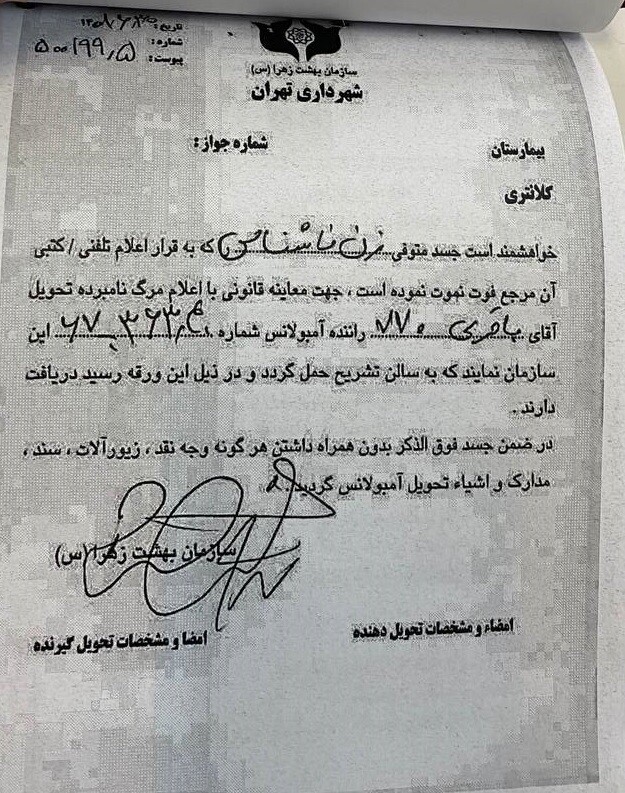 تاریخ:
شماره: ۵۰۰/۱۹۹٫۵
پیوست:
سازمان بهشت زهرا (س)
شهرداری تهران
بیمارستان شماره جواز:
کلانتری
خواهشمند است جسد متوفی زن ناشناس را که به قرار اعلام تلفنی / کتبی
آن مرجع فوت نموت نموده است ، جهت معاینه قانونی با اعلام مرگ نامبرده تحویل
آقای باقری ۸۷۰ راننده آمبولانس شماره این
سازمان نمایند که به سالن تشریح حمل گردد و در ذیل این ورقه رسید دریافت
دارند .
در ضمن جسد فوق الذکر بدون همراه داشتن هر گونه وجه نقد ، زیورآلات ، سند ،
مدارک و اشیاء تحویل آمبولانس گردید .
سازمان بهشت زهرا (س)
امضاء و مشخصات تحویل دهنده
امضا و مشخصات تحویل گیرنده